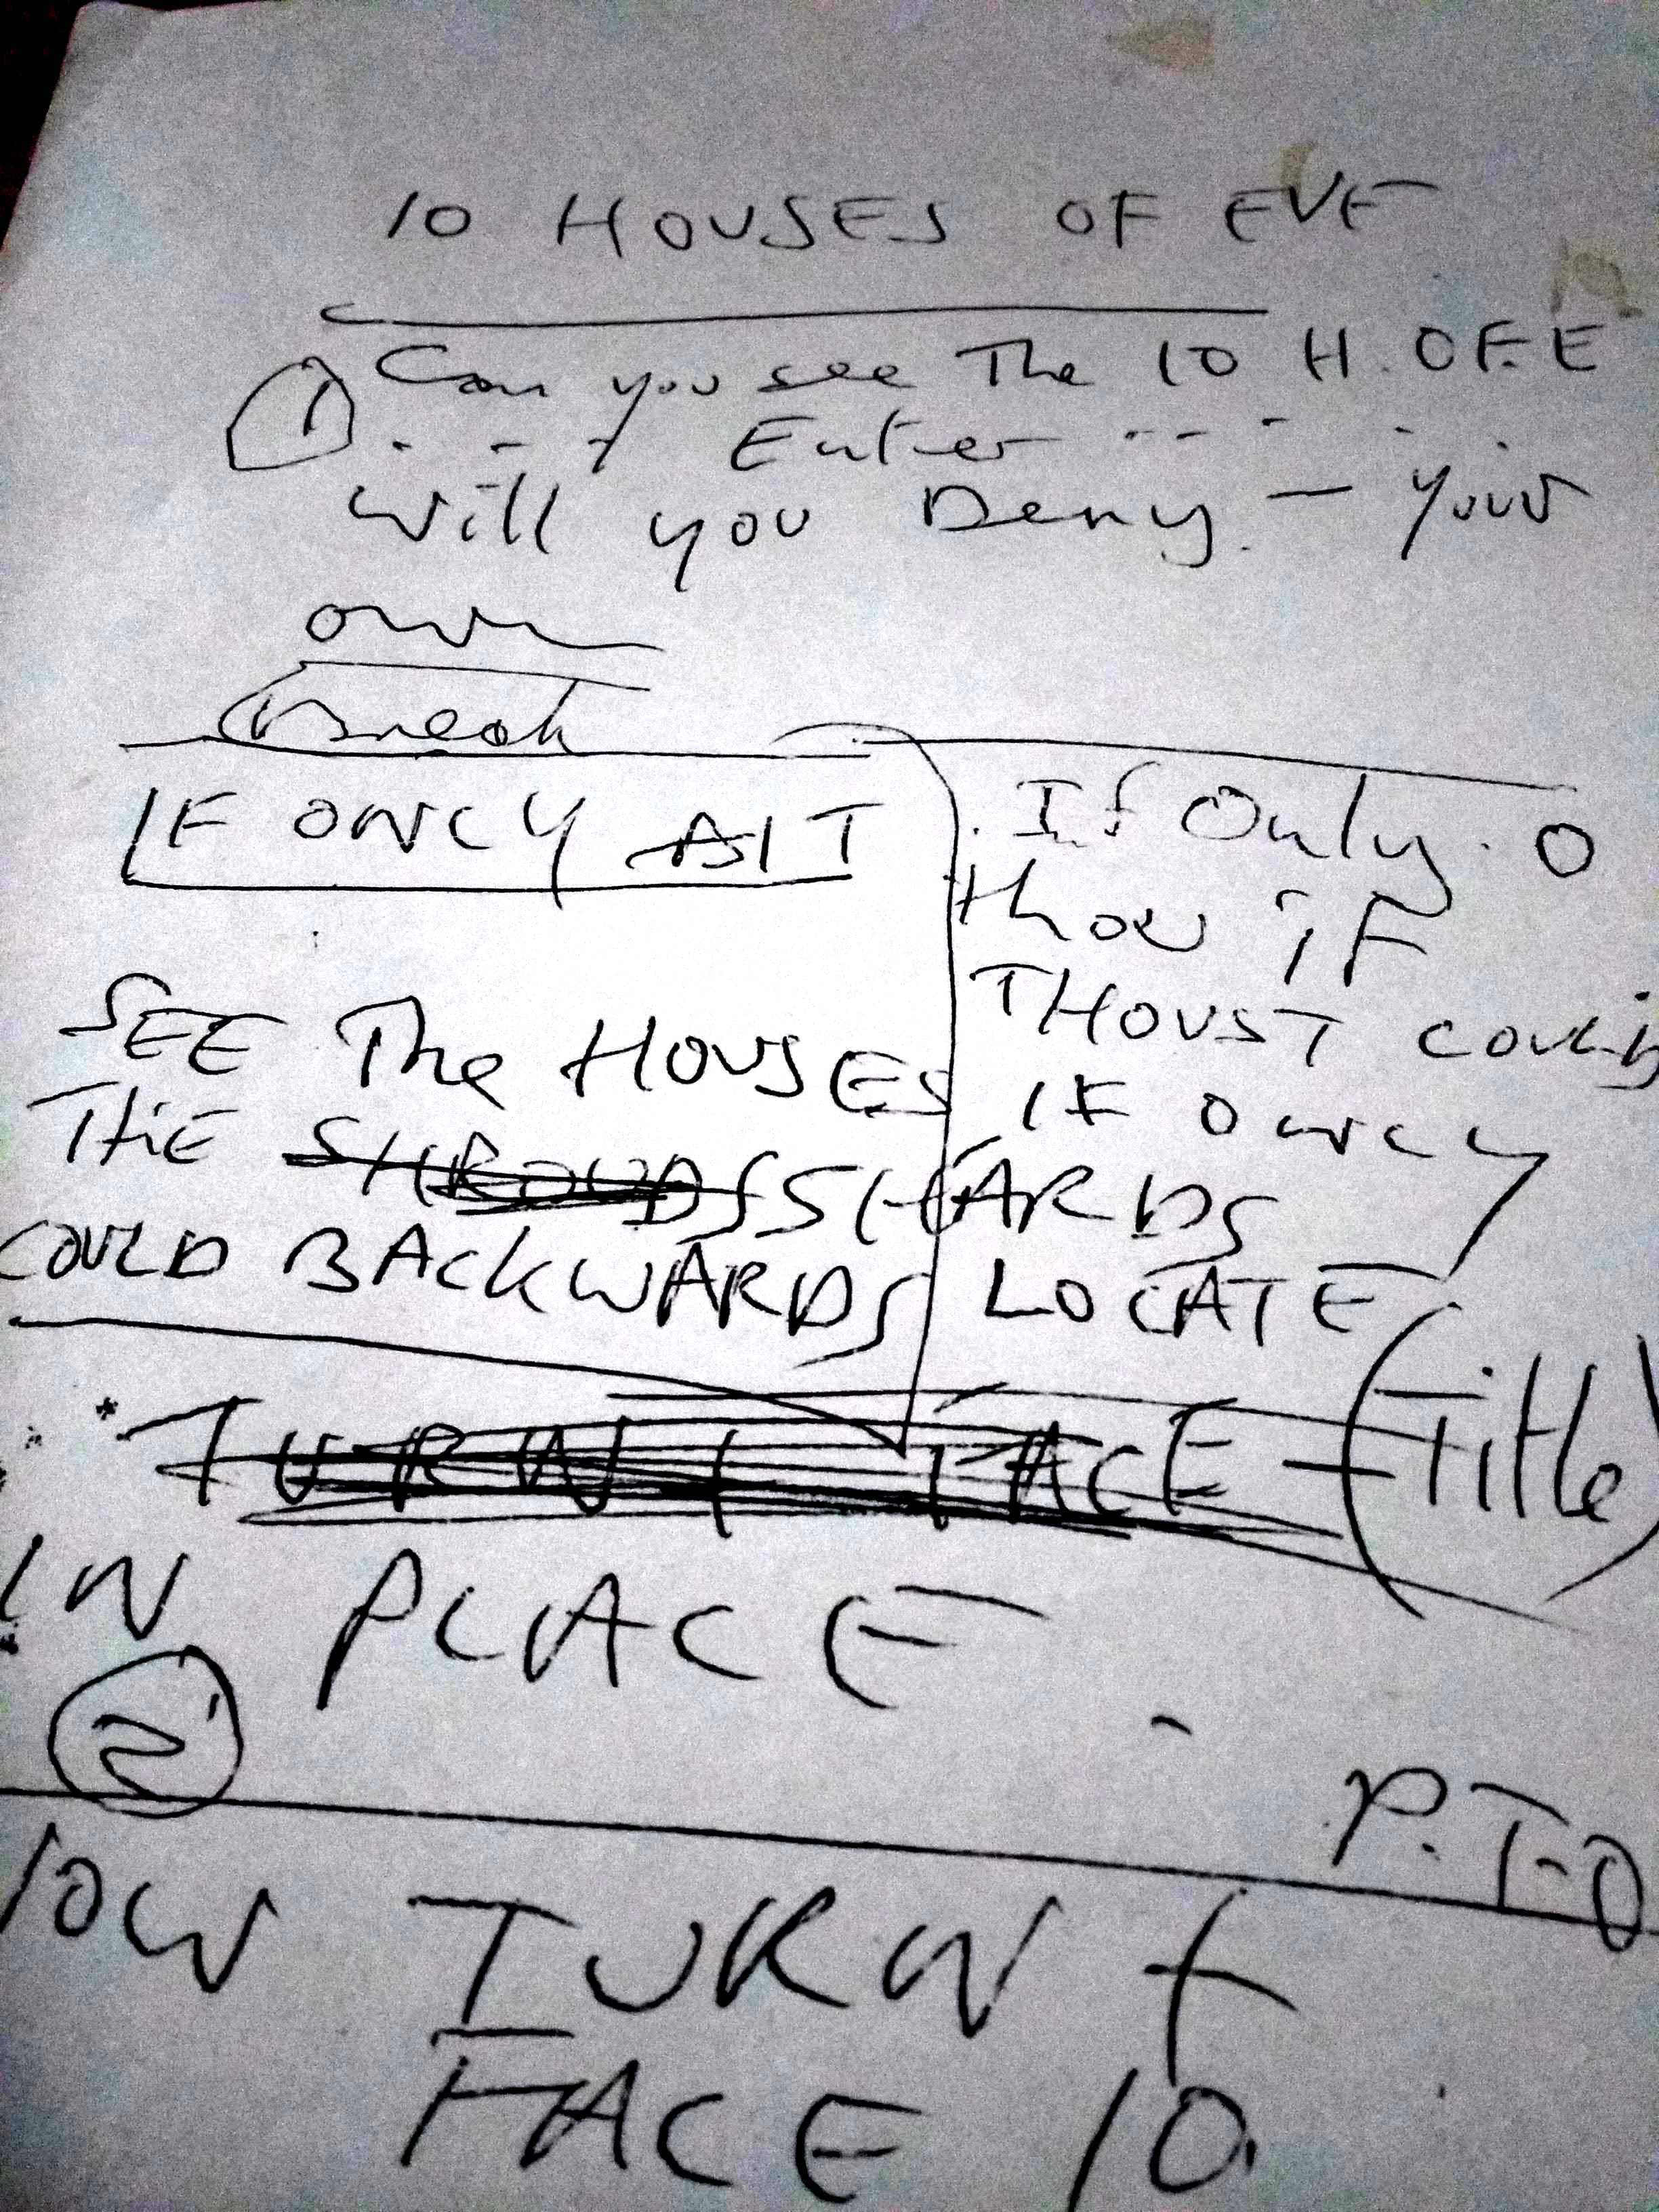 10 HOUSES OF EVE
① Can you see The 10 H. OF. E
. - - y Enter - - - - - .
will you Deny. — your
own
Break
IF ONLY ALT
SEE The HOUSES
. If Only. O
thou iF
THOUST COULD
IF ONLY
THE SHROUDS SHARDS
COULD BACKWARDS LOCATE
* TURN & FACE - (Title)
IN PLACE
②
P.T.O
TURN &
FACE 10.